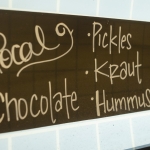 Local
Chocolate
• Pickles
• Kraut
• Hummus